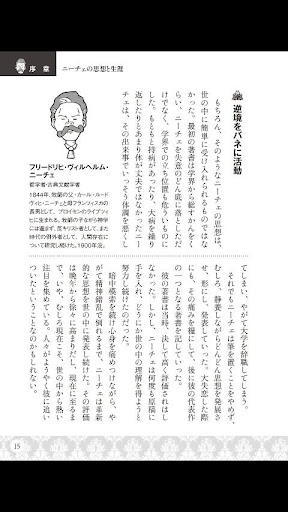 序章
ニーチェの思想と生涯
逆境をバネに活動
もちろん、そのようなニーチェの思想は、
世の中に簡単に受け入れられるものではな
かった。最初の著書は学界から総すかんをく
らい、ニーチェを失意のどん底に落としただ
けでなく、学界での立ち位置も危ういものに
した。もともと持病があったり、大病を繰り
返したりとあまり体が丈夫ではなかったニー
チェは、その出来事でいっそう体調を悪くし
てしまい、やがて大学を辞職してしまう。
それでもニーチェは筆を置くことをやめず、
むしろ、静養しながらどんどん思想を発展さ
せ、形にし、発表していった。大失恋した際
にも、その痛みを糧にして、後に彼の代表作
の一つとなる著書を記していった。
彼の著書は当時、決して高く評価されはし
なかった。しかし、ニーチェは何度も原稿に
手を入れ、どうにか世の中の理解を得ようと
努力し続けたのだった。
暗中模索を続け心身を痛めつけながら、や
がて精神錯乱で倒れるまで、ニーチェは革新
的な思想を世の中に発表し続けた。その評価
は晩年から徐々に高まりだし、現在に至るま
で、いや、むしろ現在こそ、世の中から熱い
注目を集めている。人々がようやく彼に追い
ついたということなのかもしれない。
フリードリヒ・ヴィルヘルム・
ニーチェ
哲学者・古典文献学者
1844年、牧師の父・カール・ルード
ヴィヒ・ニーチェと母フランツィスカの
長男として、プロイセンのライプツィ
ヒに生まれる。牧師の子ながら神学
には進まず、反キリスト者として、また
時代の例外者として、人間存在に
ついて研究し続けた。1900年没。
15